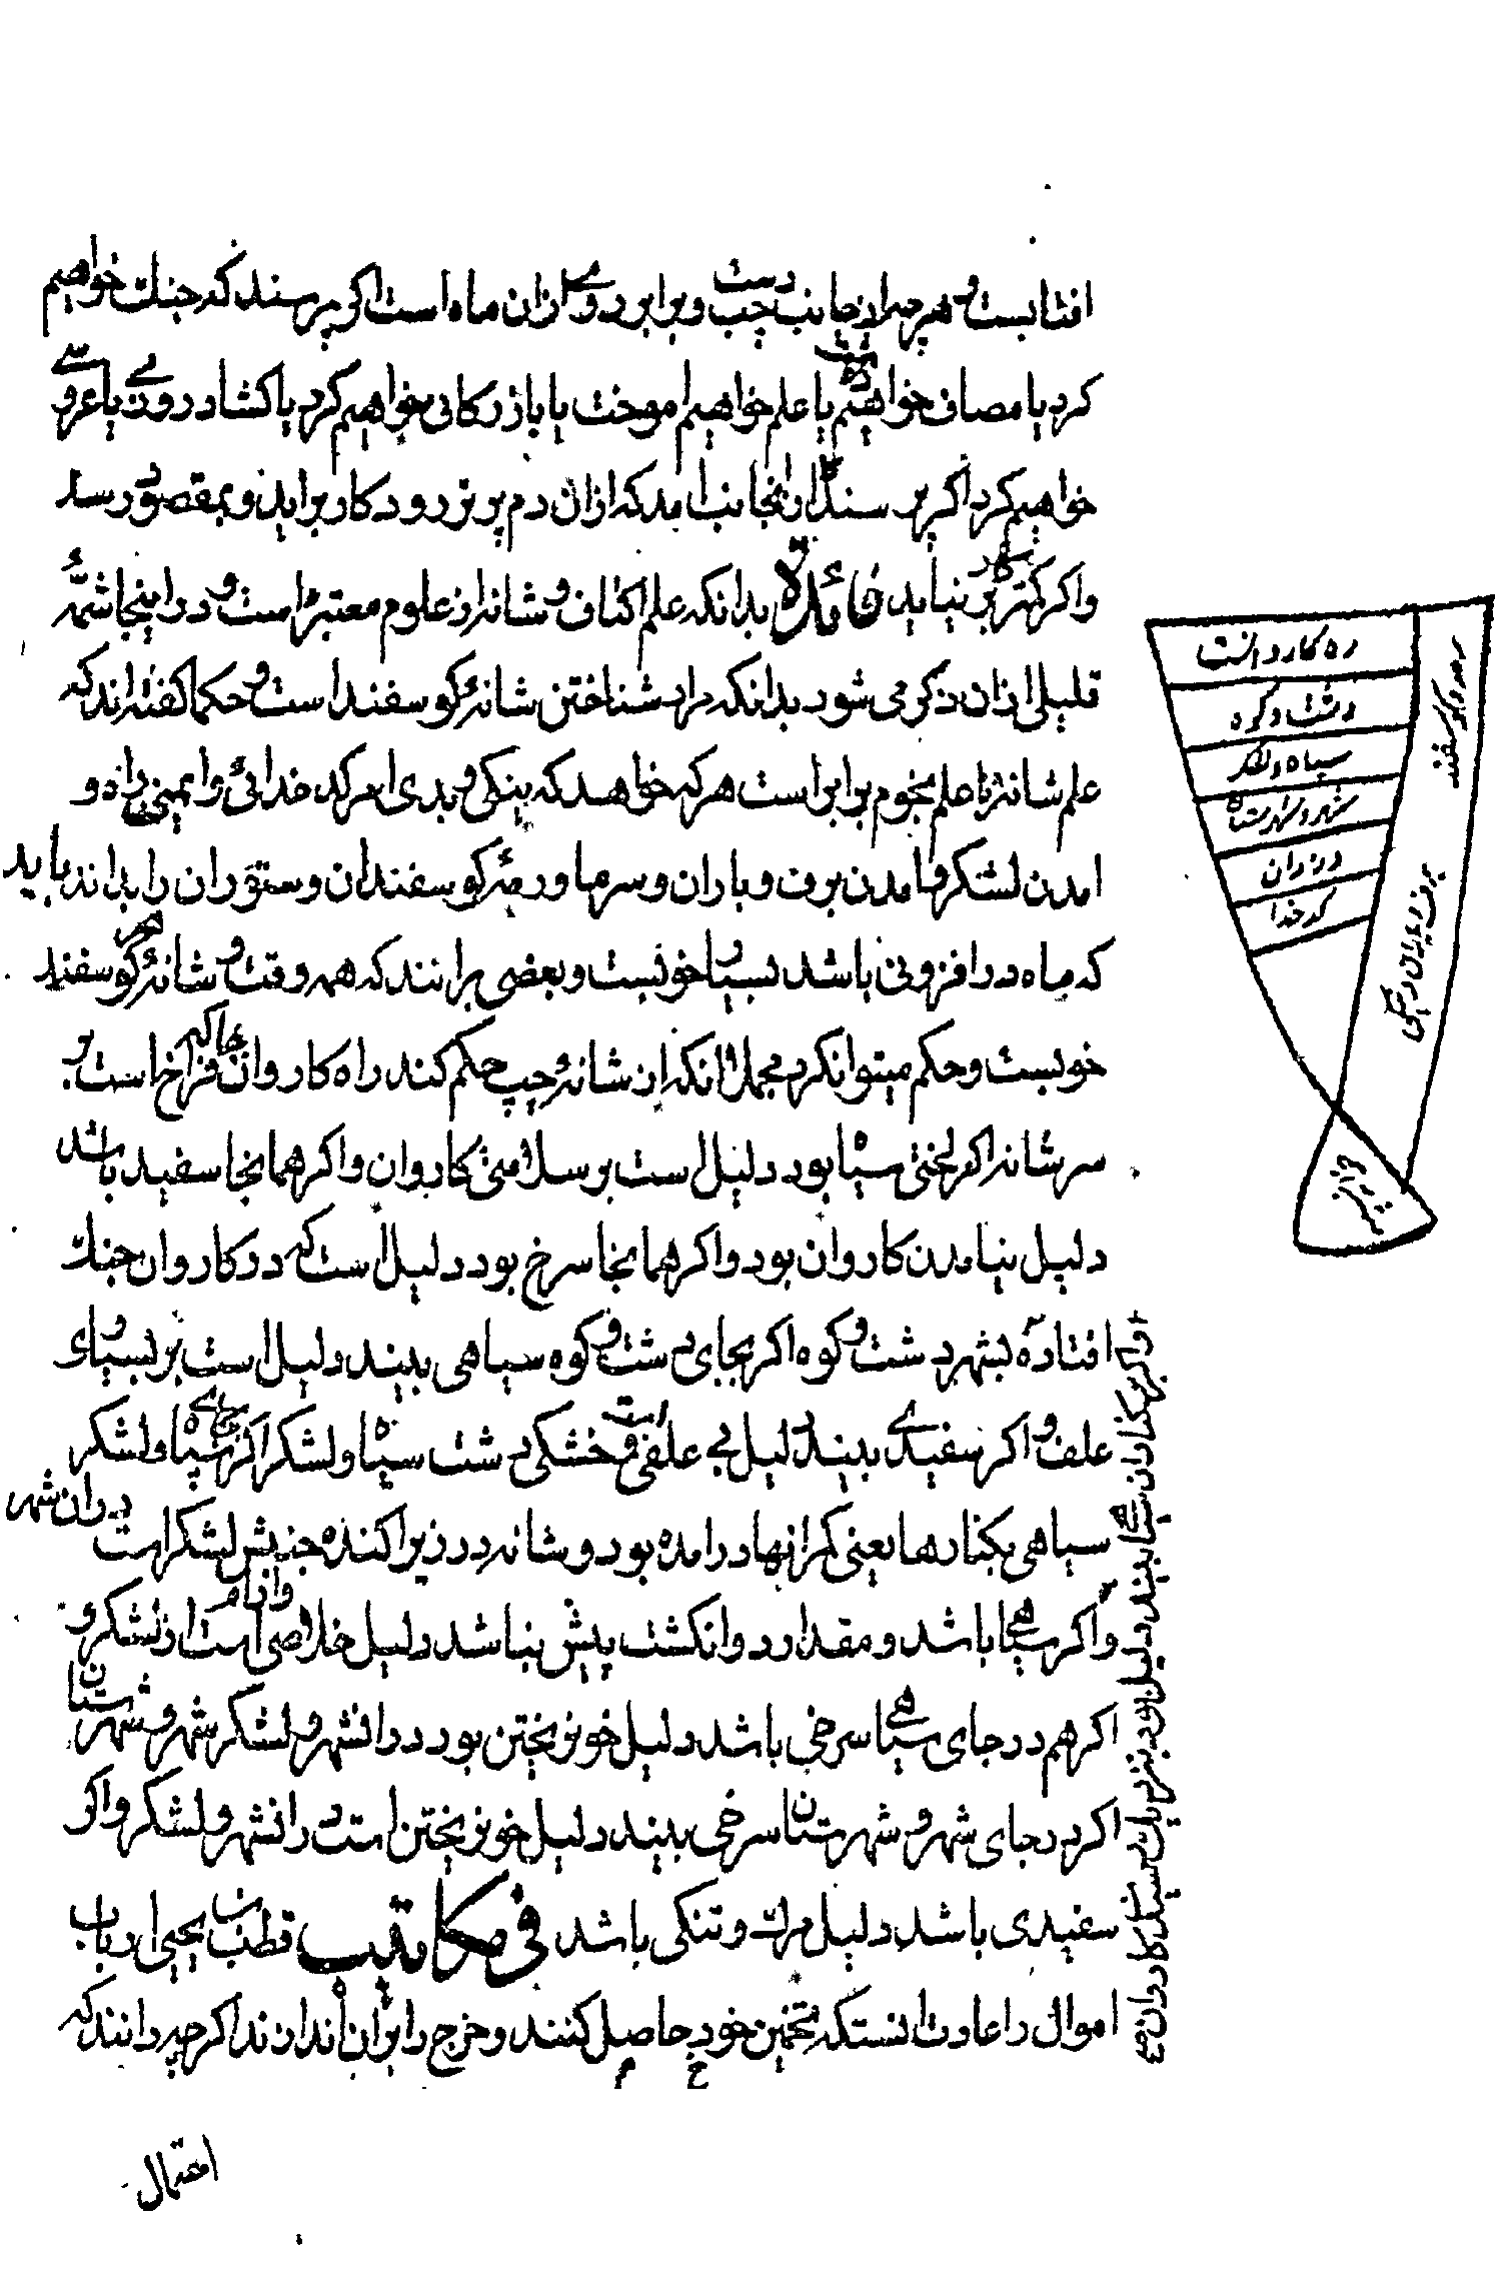 افتابست و هرچه از جانب دست چپ و برابر روی ازان ماه است اگر پرسند که جنك خواهیم
کرد یا مصاف خواهیم یا علم خواهیم اموخت یا بازرکانی خواهیم کرد یا کشاد روی یا عروسی
خواهیم کرد اکر پرسنده ازانجانب امد که ازان دم برتر رود کار براید و بمقصود رسد
واکر کمتر بود کار برنیاید فائدة بدانکه علم اکتاف و شانه از علوم معتبر است و در اینجا شمهٔ
قلیلی ازان ذکر می شود بدانکه مراد شناختن شانهٔ کوسفند است و حکما کفته اند که
علم شانه با علم نجوم برابر است هر که خواهد که نیکی و بدی امر کدخدائی و ایمنی راه و
امدن لشکر و امدن برف و باران و سرما و رمهٔ کوسفندان و ستوران را بداند باید
که ماه در افزونی باشد بسیار خوبست و بعضی برانند که همه وقت و شانهٔ هر کوسفند
خوبست و حکم میتوان کرد مجملا انکه از شانهٔ چپ حکم کند راه کاروان جاکه فراخ است بر
سر شانه اکر لختی سیاه بود دلیل است بر سلامتی کاروان و اکر همانجا سفید باشد
دلیل نیامدن کاروان بود و اکر همانجا سرخ بود دلیل است که در کاروان جنك
افتاده بشهر دشت و کوه اکر بجای دشت و کوه سیاهی بیند دلیل است بر بسیاری
علف و اکر سفیدی بیند دلیل بی علفی است و خشکی دشت سپاه و لشکر اکر بجای سپاه و لشکر
سیاهی بکنارها یعنی کرانها درامده بود و شانه در زیر اکنده جنبش لشکر است دران شهر
و اکر سیاهی باشد و مقدار دو انکشت بیش نباشد دلیل خلاصی و ارام است از لشکر و
اکر هم در جای سیاهی سرخی باشد دلیل خون ریختن بود در انشهر و لشکر شهر و شهرستان
اکر در جای شهر و شهرستان سرخی بیند دلیل خون ریختن است در انشهر و لشکر و اکر
سفیدی باشد دلیل مرك و تنکی باشد فی مکاتیب قطب بن یحیی ارباب
اموال را عادت انستکه تخمین خود حاصل کنند و خرج را بران اندازند اکرچه دانند که
احتمال
ره کاروانست
دشت و کوه
سپاه و لشکر
شهر و شهرستان
کدخدا